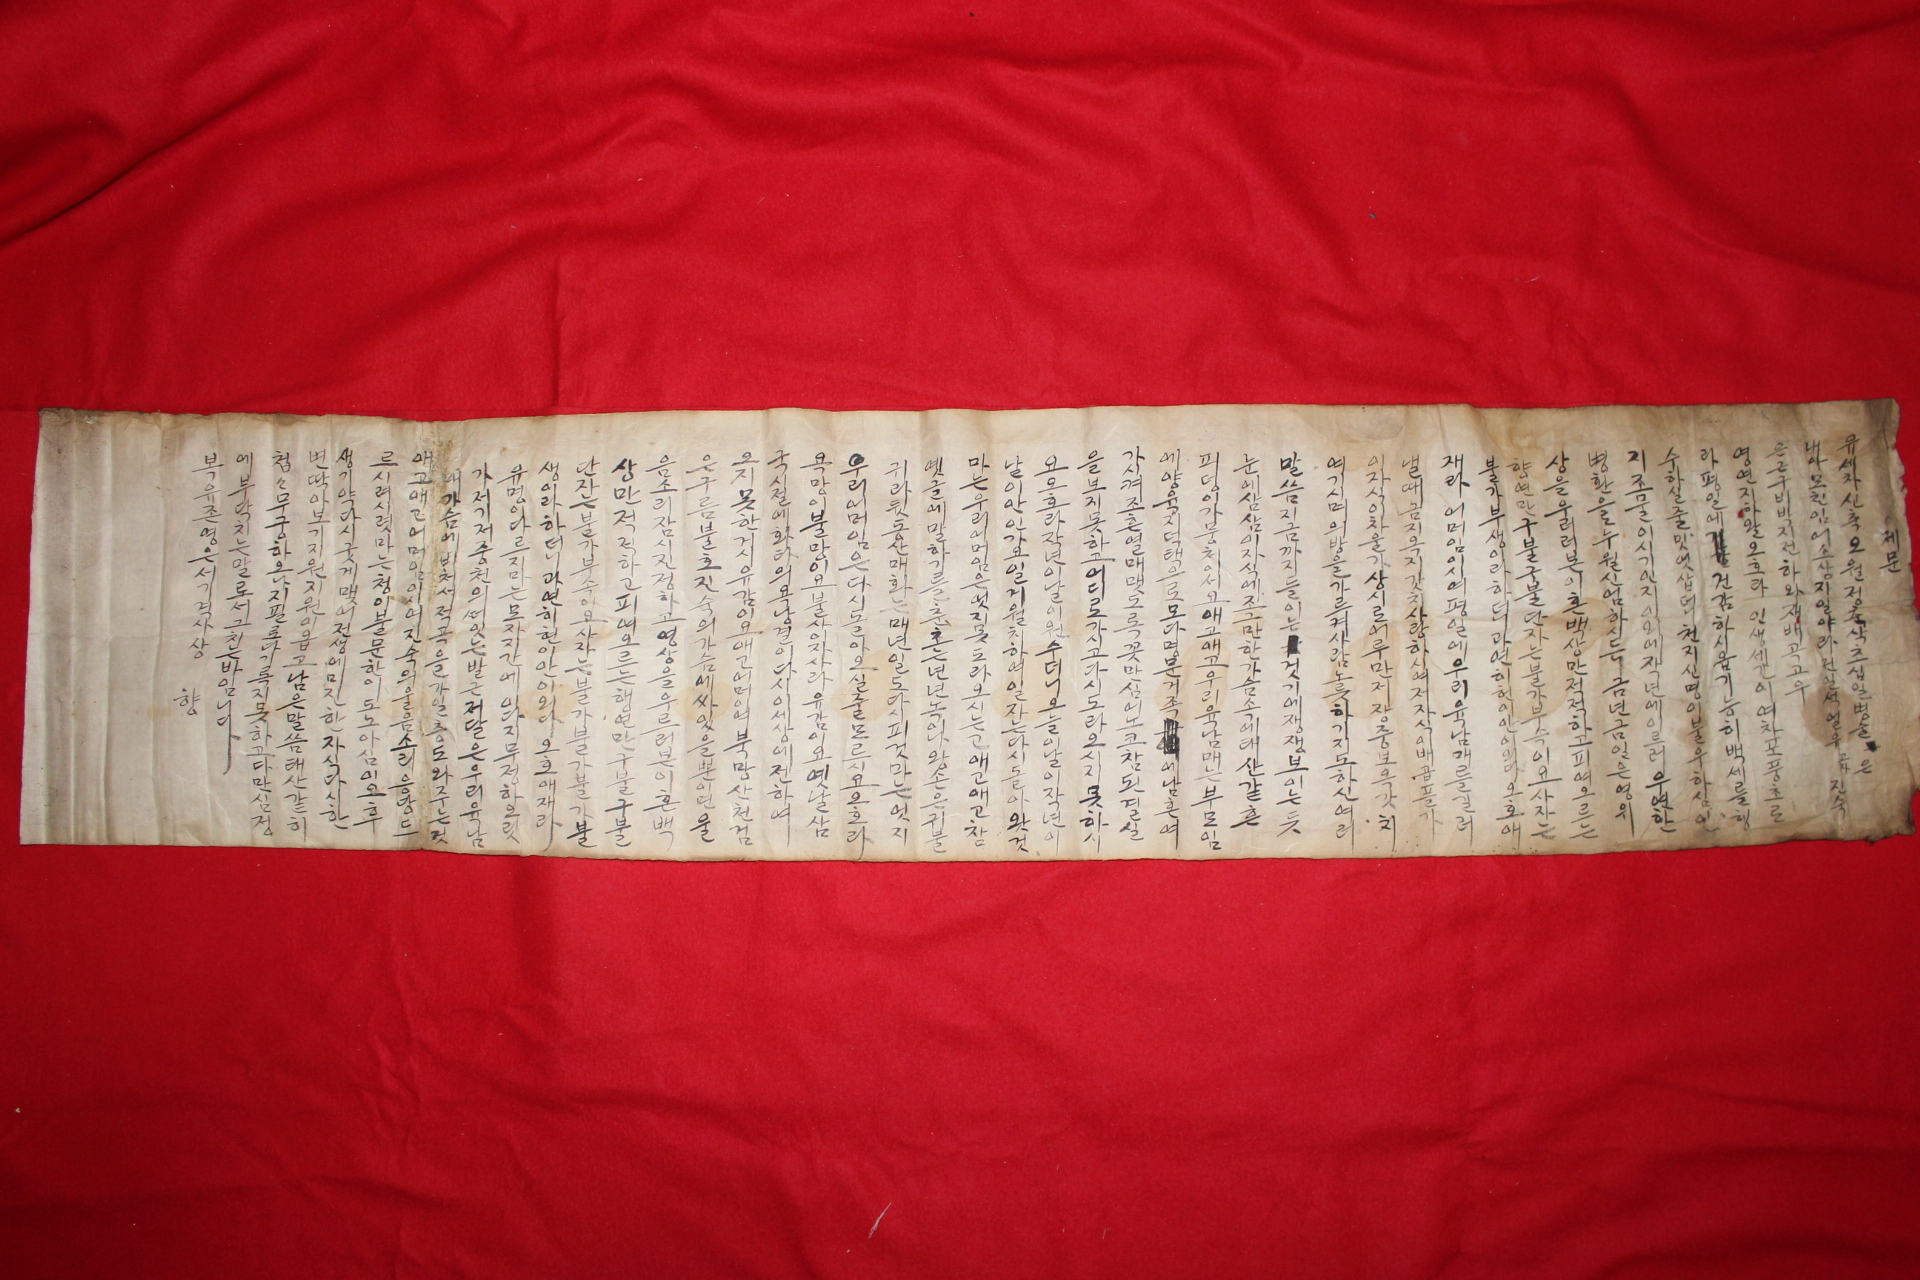 제문
유세차신축오월정유삭초십일병술은
내아모친임의소상지일야라전일석얼유자진숙
은은구비비지전하와재배고고우
영연지하왈오호라 인생세간이여차포풍초로
라평일에 건감하사옴기능히백세를향
수하실줄밋엇삽더 천지신명이불우하심인
지조물이시기인지의외에자년에이르러 우연한
병환을누월신엄하시든 금년금일은영위
상을우러러본이혼백상만적적하고피여오르는
향연만구불구불단자는불가부속이요사자는
불가부생이라하더 과연허헌인이외다오호애
재라 어머임이여평일에우리육남매를길러
낼때금지옥지갓치사랑하시며저자식이배곱플가
이자식이차울가상시로어루만저 장중보옥갓치
여기시며의방을가르켜사람노릇하기지도하신여러
말씀지금까지들이는 것기에쟁쟁부이는듯
눈에삼삼이자식에조그만한가슴소게태산갇흔
피덩이가뭉치서요애고애고우리육남매는부모임
에양육지덕택으로모다명문거족 에남혼여
가시켜조흔열매맷도록꽃만심어노코참된결실
을보지못하고어디로가시고다시도라오시지못하시
요오호라작년이날이원수더니오늘이날이작년이
날이안인가요일게월치하여일잔는다시돌아왓것
마는우리어머임은엇지못도라오시는고애고애고참
옛글에말하기를춘초는년년노기나왕손은귀불
귀라뒷동산매화는매년일도다시피것마는엇지
우리어머임은다시돌아오실줄모르시요오호라
욕망이불망이요불사이자사라 유감이요옛날삼
국시절에화타의요낭결이다시이세상에전하여
오지못한거시유감이요애고어머이여북망산천검
은구름불효진숙의가슴에싸잇을뿐이런울
음소리잠시진정하고영상을우러러본이혼백
상만적적하고피여오르는행연만구불구불
단자는불가부속이요사자는불가불가불가불
생이라하더니과연허헌이안이외다 오호애재라
유명이다르지마는모자간에이다지무정하오릿
가저기저중천의떠있는발근저달은우리육남
매가슴에비처서적푹을가일층도와주는것
애고애고어머임이여진숙의울음소리응당드
르시려시련마는청이불문한이도도아심이오후
생기약다시굿게맷어전생에미진한자시다시한
번딱아보기지원지원이옵고남은말씀태산갇히
첩첩무궁하오나지필로다기록지못하고다만심정
에부닥치는말로써고친는바임니다
복유존영은서기격사상
향